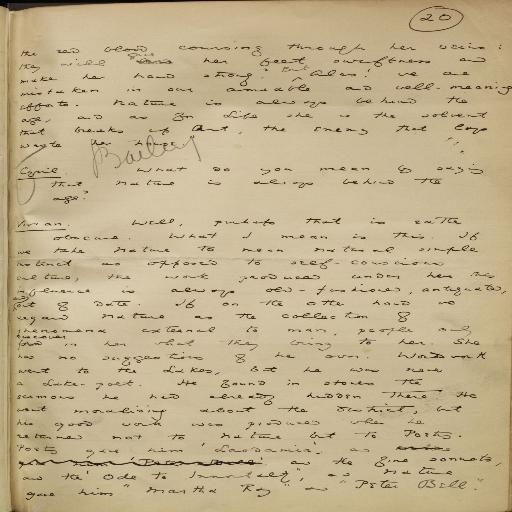 20
the red blood coursing through her veins:
they will give her feet swiftness and
make her hand strong." But Alas! we are
mistaken in our amiable and well-meaning
efforts. Nature is always behind the
age, and as for Life she is the solvent
that breaks up Art, the enemy that lays
waste her house."
Bailey
Cyril. What do you mean by saying
that Nature is always behind the
age?
Vivian. Well, perhaps that is rather
obscure. What I mean is this. If
we take Nature to mean natural simple
instinct as opposed to self-conscious
culture, the work produced under her
influence is always old-fashioned, antiquated,
and out of date. If on the other hand we
regard Nature as the collection of
phenomena external to man, people only
discover in her what they bring to her. She
has no suggestions of her own. Wordsworth
went to the Lakes, but he was never
a Lake-poet. He found in stones the
sermons he had already hidden there. He
went moralising about the district, but
his good work was produced when he
returned not to Nature but to Poetry.
Poetry gave him 'Laodamia', as
gave him 'Peter Bell' and the fine sonnets,
and the 'Ode to Immortality', as Nature
gave him "Martha Ray" and "Peter Bell."